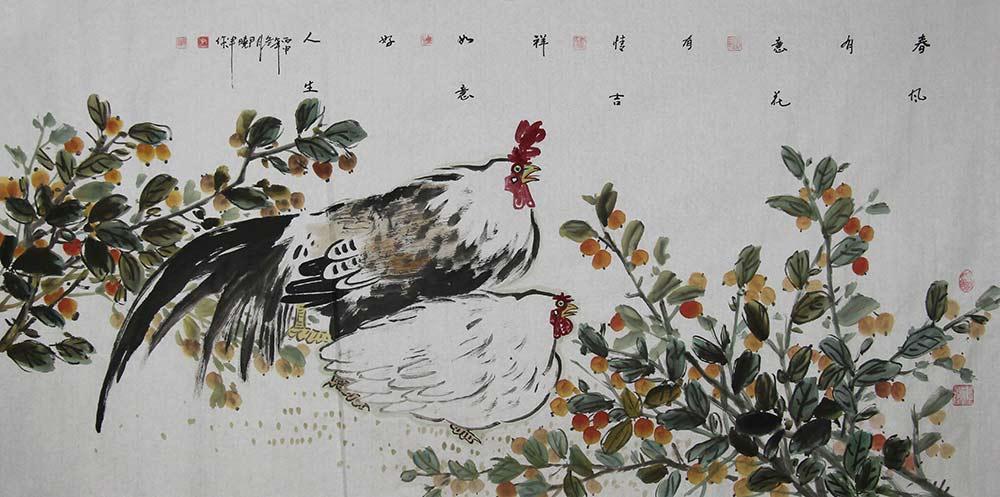 春风
有
意花
有
情吉
祥
如意
好
人生
丙申年冬月
作